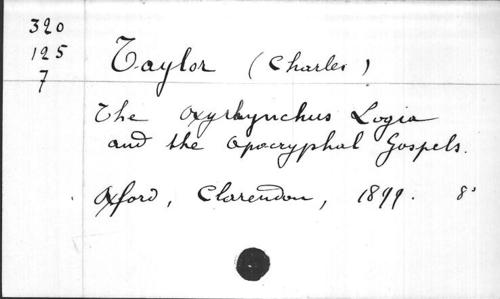 320
125
7
Taylor (Charles)
The Oxyrhynchus Logia
and the Apocryphal Gospels.
Oxford, Clarendon, 1899. 8°